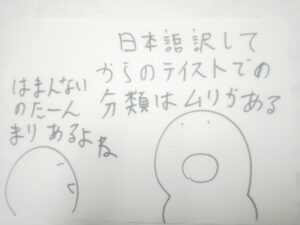 日本語訳して
からのテイストでの
分類はムリがある
はまんない
のたーん
まり あるよね